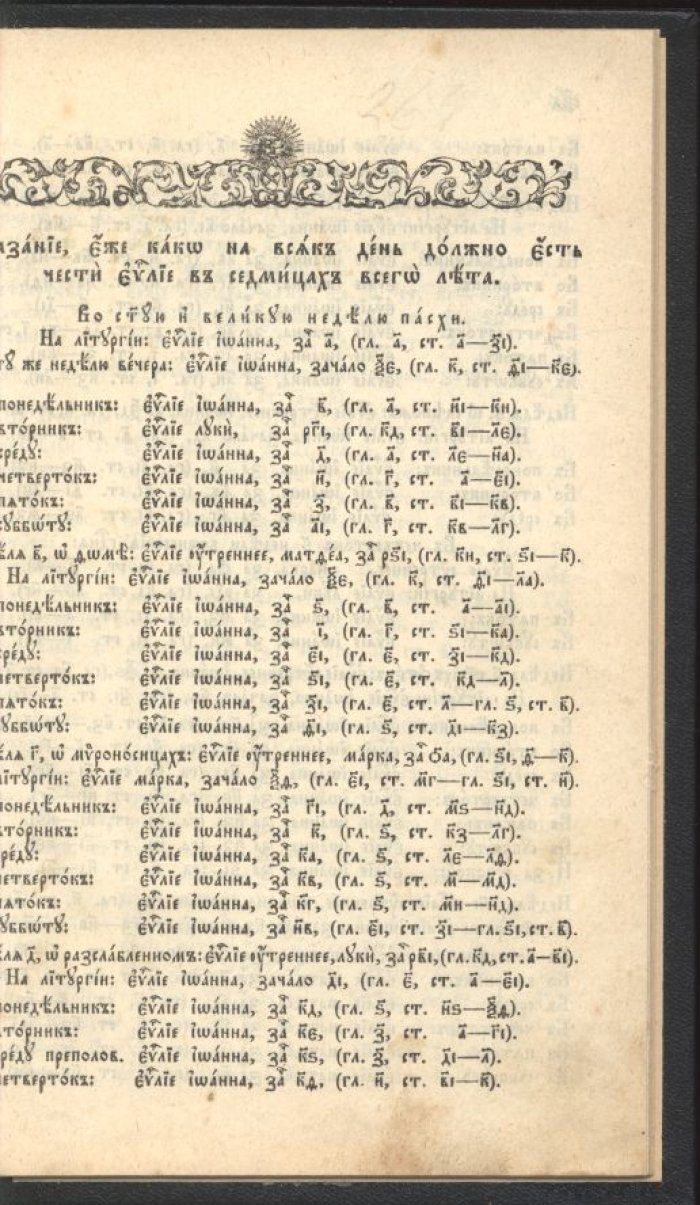 аза́нїе, є҆́же ка́кѡ на всѧ́къ де́нь до́лжно є҆́сть
честѝ є҆ѵⷢ҇лїе въ седми́цахъ всегѡ̀ лѣ́та.
Во ст҃у́ю и҆ вели́кую недѣ́лю па́схи.
На лїтꙋргі́и: є҆ѵⷢ҇лїе і҆ѡа́нна, заⷱ҇ а҃, (гл. а҃, ст. а҃—з҃і).
тꙋ же недѣ́лю ве́чера: є҆ѵⷢ҇лїе і҆ѡа́нна, зача́ло ѯ҃є, (гл. к҃, ст. ѳ҃і—к҃є).
понедѣ́льникъ: є҆ѵⷢ҇лїе і҆ѡа́нна, заⷱ҇ в҃, (гл. а҃, ст. и҃і—к҃и).
вто́рникъ: є҆ѵⷢ҇лїе лꙋкѝ, заⷱ҇ рг҃і, (гл. к҃д, ст. в҃і—л҃є).
сре́дꙋ: є҆ѵⷢ҇лїе і҆ѡа́нна, заⷱ҇ д҃, (гл. а҃, ст. л҃є—н҃а).
четверто́къ: є҆ѵⷢ҇лїе і҆ѡа́нна, заⷱ҇ и҃, (гл. г҃, ст. а҃—є҃і).
пѧто́къ: є҆ѵⷢ҇лїе і҆ѡа́нна, заⷱ҇ з҃, (гл. в҃, ст. в҃і—к҃в).
сꙋббѡ́тꙋ: є҆ѵⷢ҇лїе і҆ѡа́нна, заⷱ҇ а҃і, (гл. г҃, ст. к҃в—л҃г).
ѣ́лѧ в҃, ѡ҆ ѳѡмѣ̀: є҆ѵⷢ҇лїе ᲂу҆́треннее, матѳе́а, заⷱ҇ рѕ҃і, (гл. к҃и, ст. ѕ҃і—к҃).
На лїтꙋргі́и: є҆ѵⷢ҇лїе і҆ѡа́нна, зача́ло ѯ҃є, (гл. к҃, ст. ѳ҃і—л҃а).
понедѣ́льникъ: є҆ѵⷢ҇лїе і҆ѡа́нна, заⷱ҇ ѕ҃, (гл. в҃, ст. а҃—а҃і).
вто́рникъ: є҆ѵⷢ҇лїе і҆ѡа́нна, заⷱ҇ і҃, (гл. г҃, ст. ѕ҃і—к҃а).
сре́дꙋ: є҆ѵⷢ҇лїе і҆ѡа́нна, заⷱ҇ є҃і, (гл. є҃, ст. з҃і—к҃д).
четверто́къ: є҆ѵⷢ҇лїе і҆ѡа́нна, заⷱ҇ ѕ҃і, (гл. є҃, ст. к҃д—л҃).
пѧто́къ: є҆ѵⷢ҇лїе і҆ѡа́нна, заⷱ҇ з҃і, (гл. є҃, ст. л҃—гл. ѕ҃, ст. в҃).
сꙋббѡ́тꙋ: є҆ѵⷢ҇лїе і҆ѡа́нна, заⷱ҇ ѳ҃і, (гл. ѕ҃, ст. д҃і—к҃з).
ѣ́лѧ г҃, ѡ҆ мѷроно́сицахъ: є҆ѵⷢ҇лїе ᲂу҆́треннее, ма́рка, заⷱ҇ о҃а, (гл. ѕ҃і, ѳ҃—к҃).
лїтꙋргі́и: є҆ѵⷢ҇лїе ма́рка, зача́ло ѯ҃ѳ, (гл. є҃і, ст. м҃г—гл. ѕ҃і, ст. и҃).
понедѣ́льникъ: є҆ѵⷢ҇лїе і҆ѡа́нна, заⷱ҇ г҃і, (гл. д҃, ст. м҃ѕ—н҃д).
вто́рникъ: є҆ѵⷢ҇лїе і҆ѡа́нна, заⷱ҇ к҃, (гл. ѕ҃, ст. к҃з—л҃г).
сре́дꙋ: є҆ѵⷢ҇лїе і҆ѡа́нна, заⷱ҇ к҃а, (гл. ѕ҃, ст. л҃є—л҃ѳ).
четверто́къ: є҆ѵⷢ҇лїе і҆ѡа́нна, заⷱ҇ к҃в, (гл. ѕ҃, ст. м҃—м҃д).
пѧто́къ: є҆ѵⷢ҇лїе і҆ѡа́нна, заⷱ҇ к҃г, (гл. ѕ҃, ст. м҃и—н҃д).
сꙋббѡ́тꙋ: є҆ѵⷢ҇лїе і҆ѡа́нна, заⷱ҇ н҃в, (гл. є҃і, ст. з҃і—гл. ѕ҃і, ст. в҃).
ѣ́лѧ д҃, ѡ҆ разсла́бленномъ: є҆ѵⷢ҇лїе ᲂу҆́треннее, лꙋкѝ, заⷱ҇ рв҃і, (гл. к҃д, ст. а҃—в҃і).
На лїтꙋргі́и: є҆ѵⷢ҇лїе і҆ѡа́нна, зача́ло д҃і, (гл. є҃, ст. а҃—є҃і).
понедѣ́льникъ: є҆ѵⷢ҇лїе і҆ѡа́нна, заⷱ҇ к҃д, (гл. ѕ҃, ст. н҃ѕ—ѯ҃ѳ).
вто́рникъ: є҆ѵⷢ҇лїе і҆ѡа́нна, заⷱ҇ к҃є, (гл. з҃, ст. а҃—г҃і).
сре́дꙋ преполов. є҆ѵⷢ҇лїе і҆ѡа́нна, заⷱ҇ к҃ѕ, (гл. з҃, ст. д҃і—л҃).
четверто́къ: є҆ѵⷢ҇лїе і҆ѡа́нна, заⷱ҇ к҃ѳ, (гл. и҃, ст. в҃і—к҃).